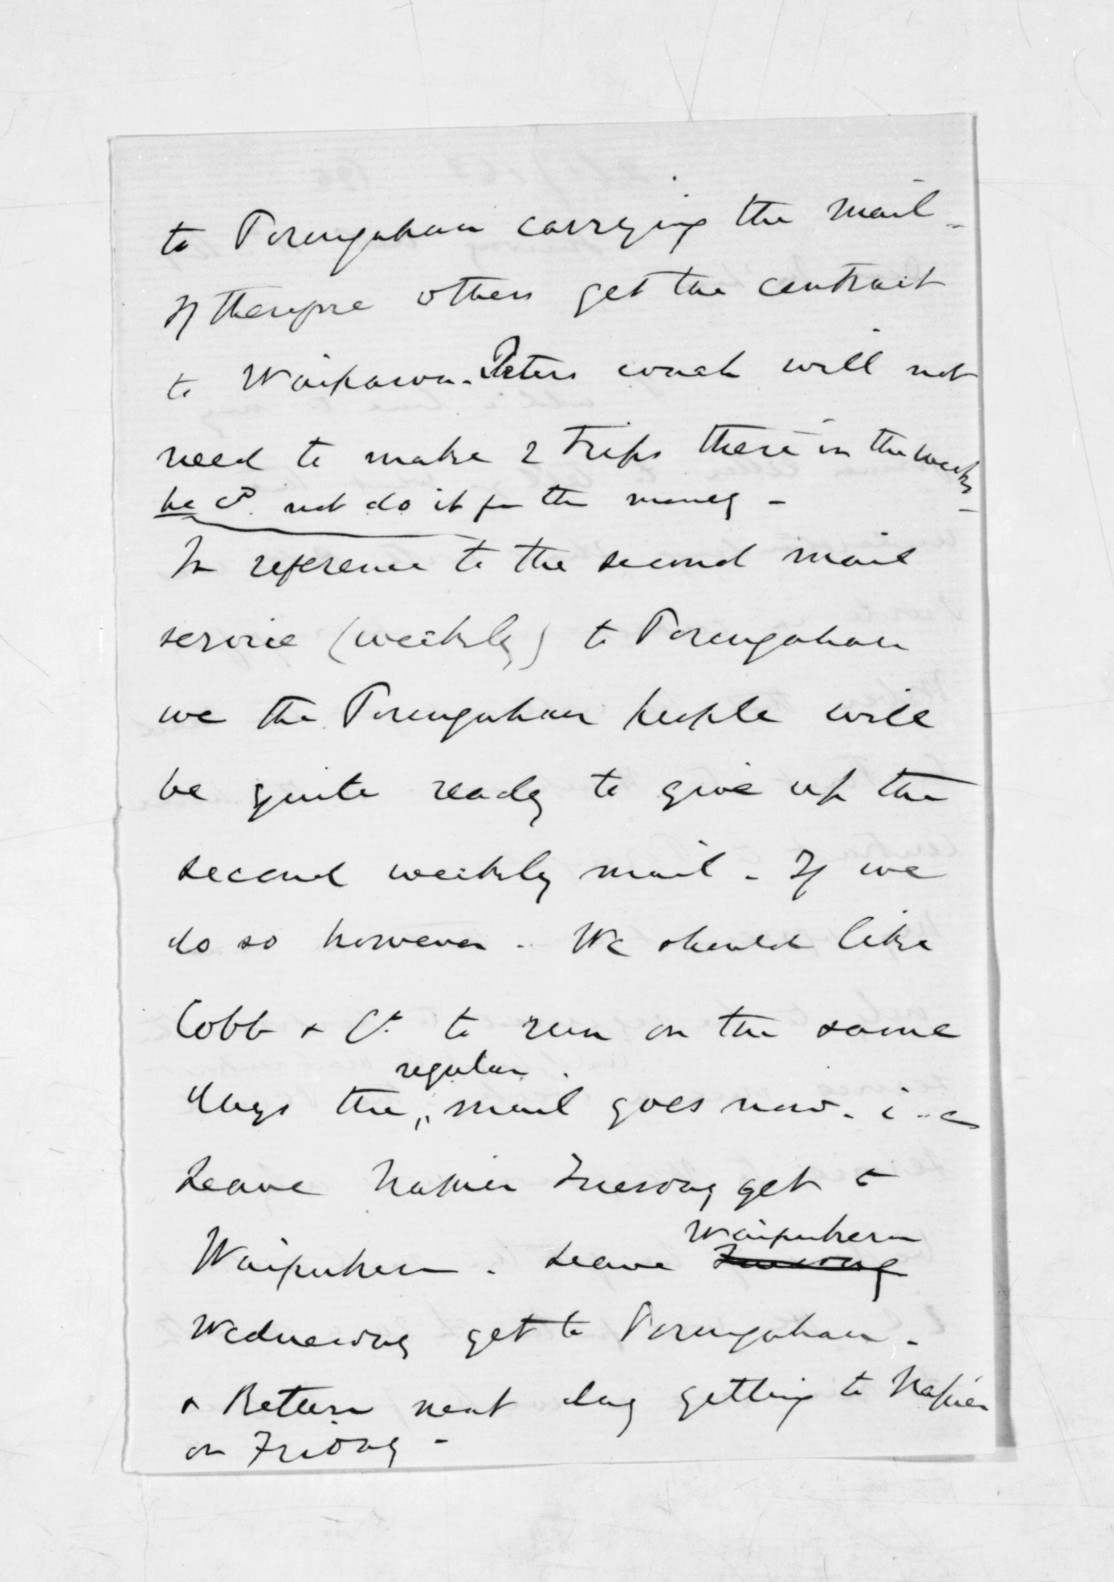 to Porangahau carrying the mail -
If therefore others get the contract
to Waipawa. Peters coach will not
need to make 2 trips there in the week,
he cd. not do it for the money -
In reference to the second mail
service (weekly) to Porangahau
we the Porangahau people will
be quite ready to give up the
second weekly mail - If we
do so however - We should like
Cobb & Co. to run on the same
regular
days the mail goes now - i.e.
Leave Napier Tuesday get to
Waipukurau
Waipukurau - Leave Tuesday
Wednesday get to Porangahau -
& Return next day getting to Napier
on Friday -